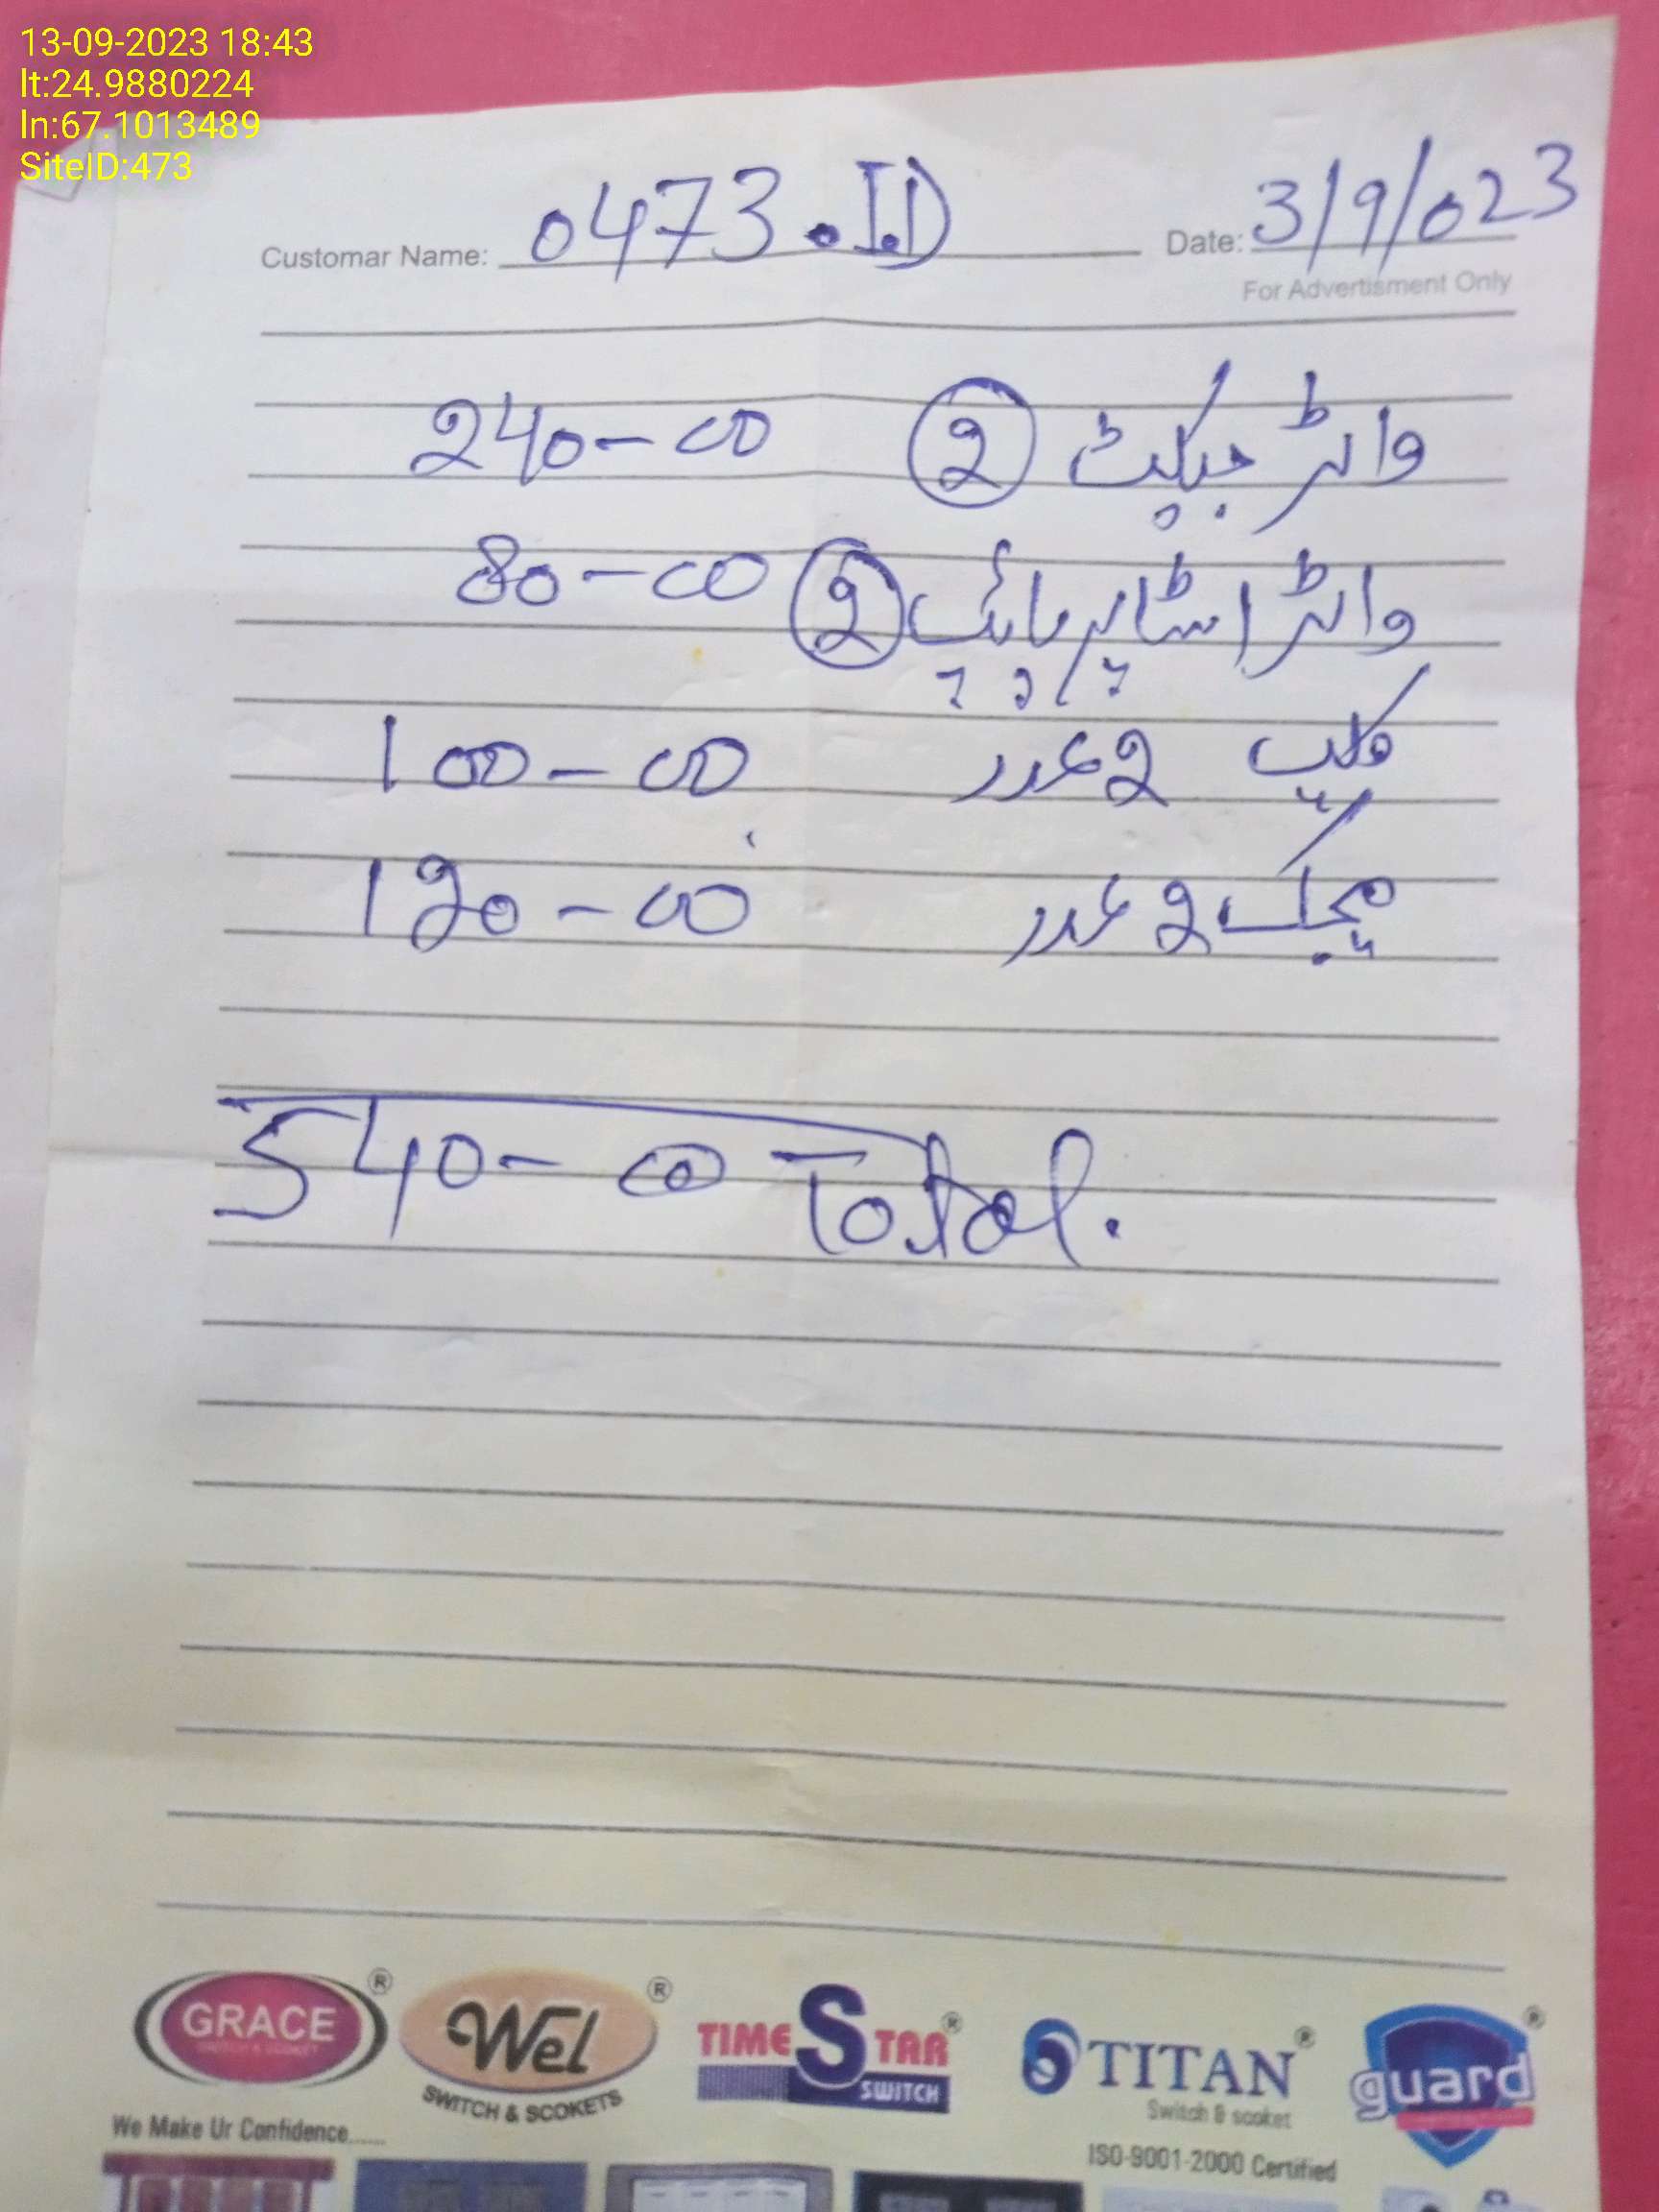 13-09-2023 18:43
lt:24.9880224
ln:67.1013489
SiteID:473
Customar Name: 0473.I.D Date: 3/9/023
For Advertisment Only
واٹر جیکٹ 2 240-00
واٹر اسٹاپر پائپ 2 80-00
کلپ 2 عدد 100-00
میجک 2 عدد 120-00
540-00 Total.
GRACE ®
Wel ®
SWITCH & SCOKETS
TIME STAR ®
SWITCH
TITAN ®
Switch & scoket
guard ®
We Make Ur Confidence......
ISO-9001-2000 Certified